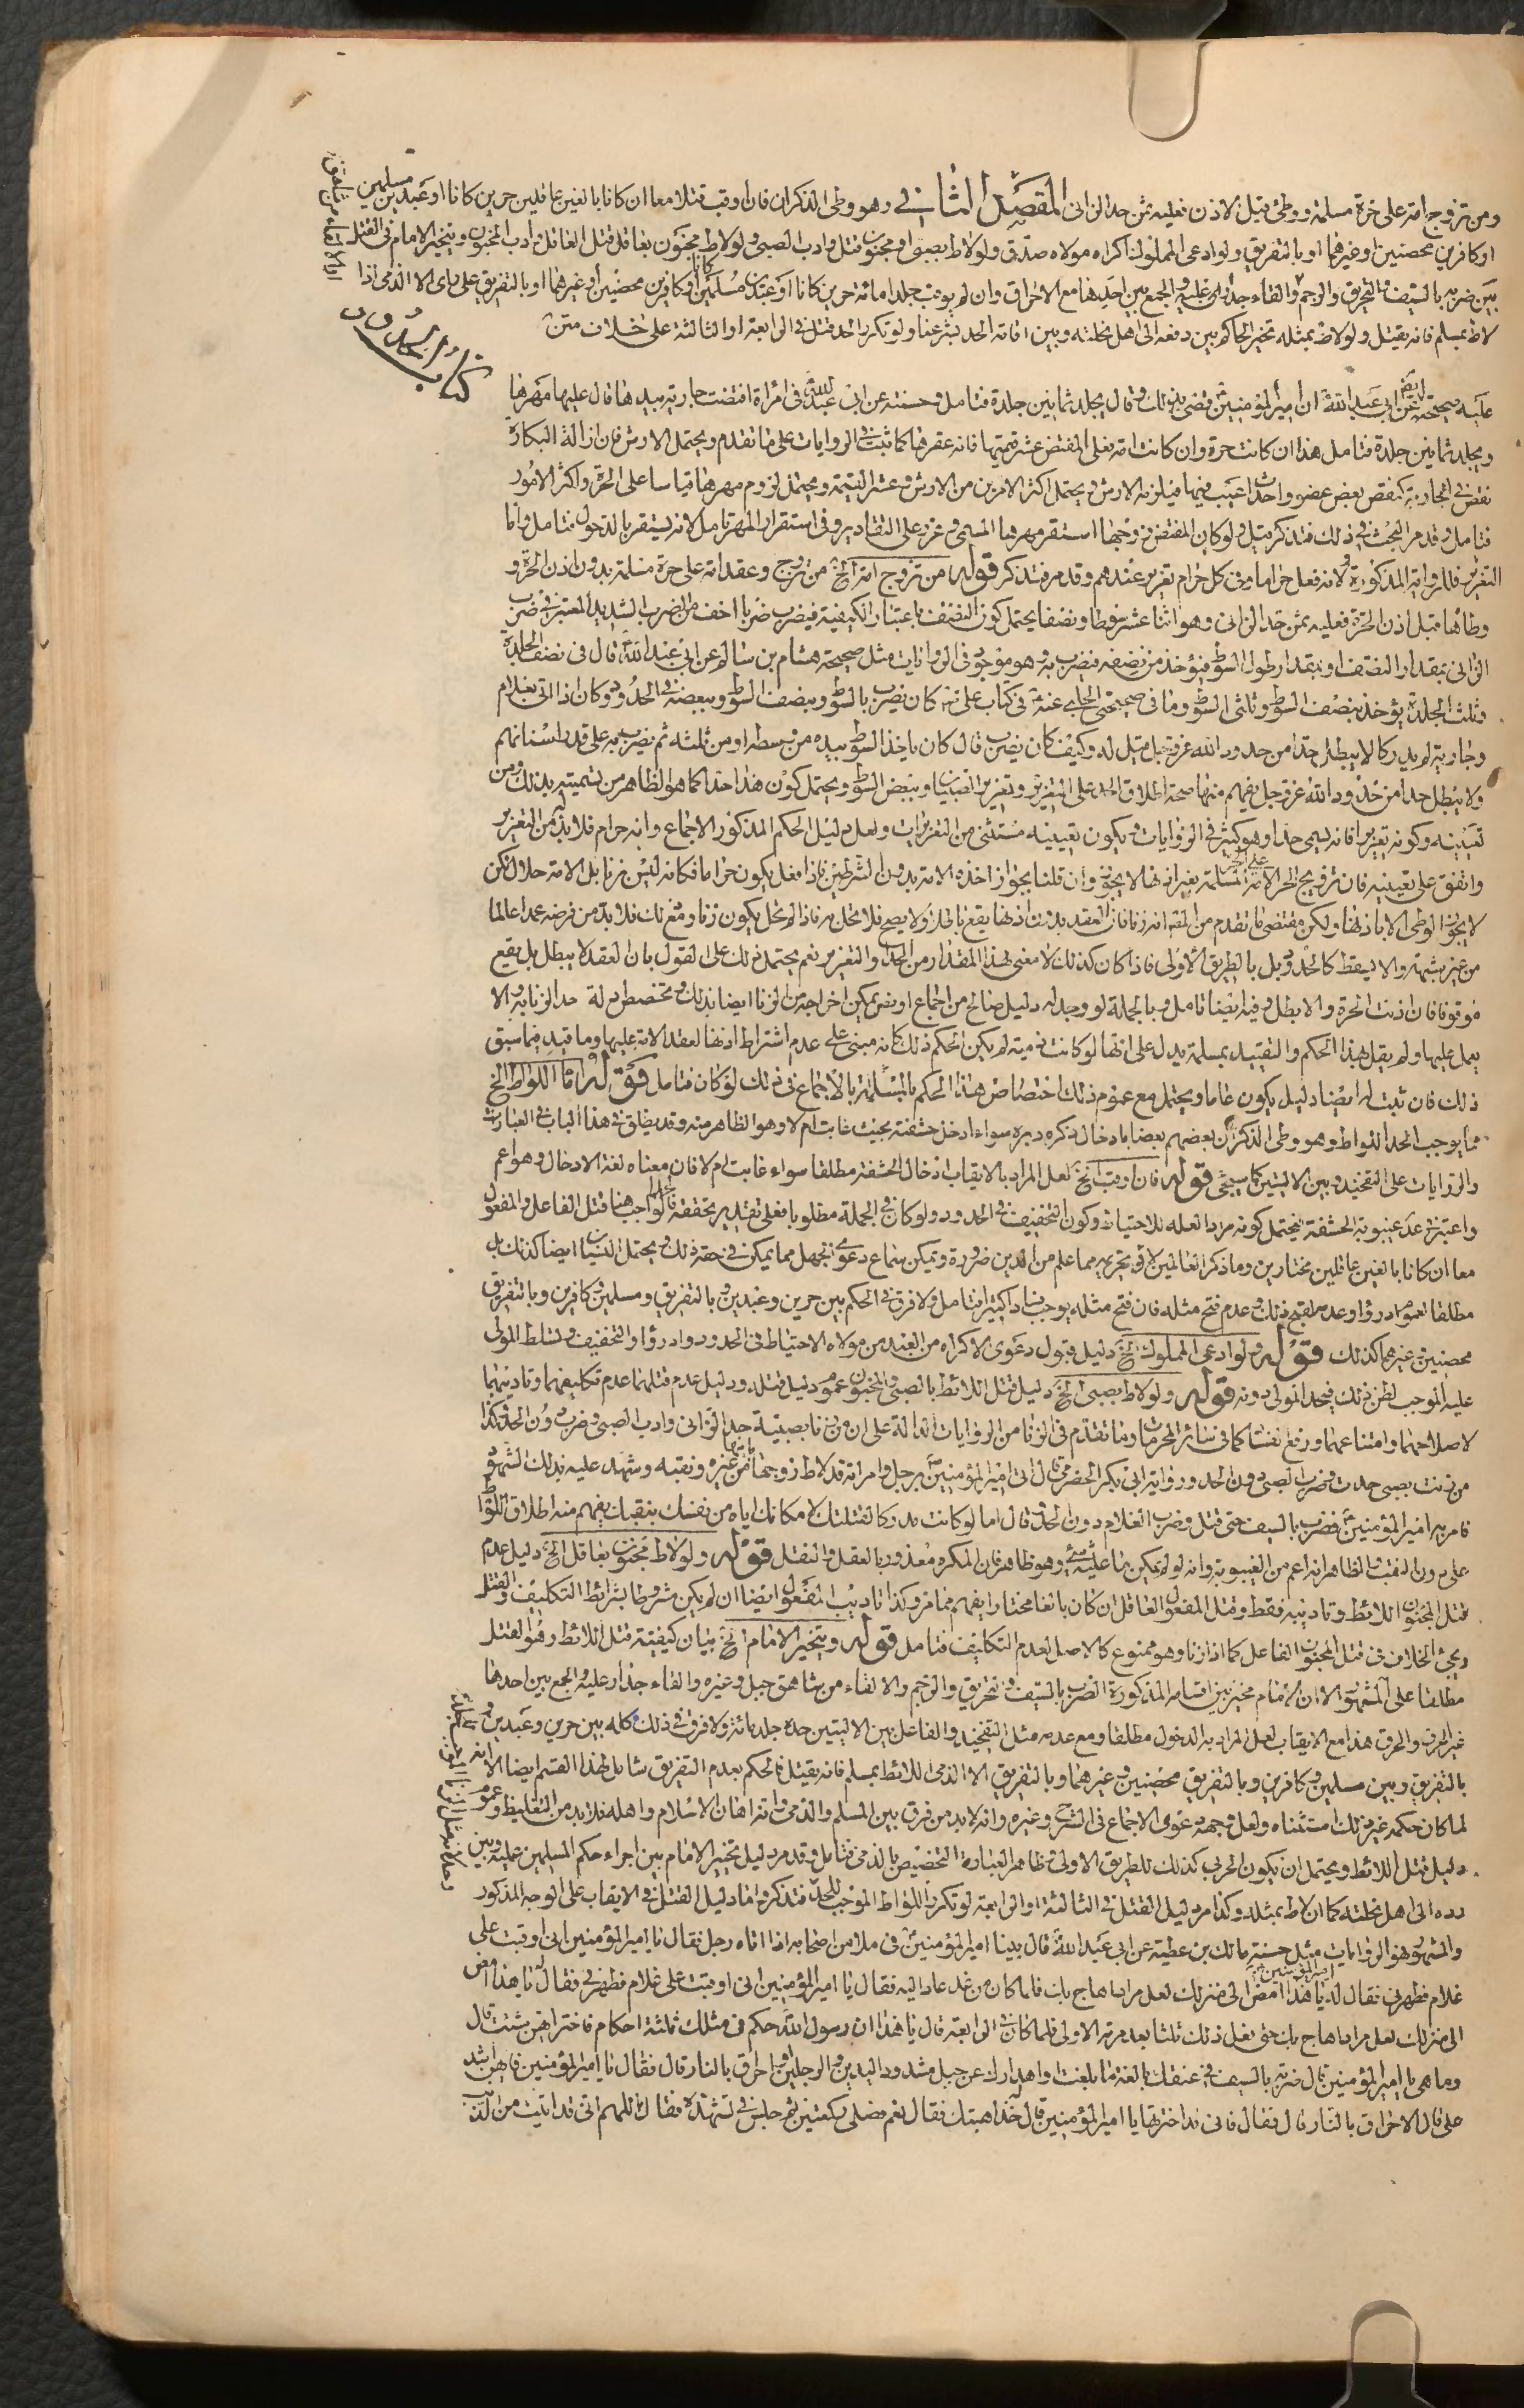 ومن تزوج امة على حرة مسلمة ووطئ قبل الاذن فعليه ثمن حد الزانى المقصد الثانى فى وهو وطى الذكران فان اوقب قتلا معا ان كانا بالغين عاقلين حرين كانا او عبدين مسلمين
او كافرين محصنين او غيرهما او بالتفريق ولو ادعى المملوك اكراه مولاه صدق ولو لاط بصبى او مجنون قتل وادب الصبى ولو لاط مجنون بعاقل قتل العاقل وادب المجنون ويتخير الامام فى القتل
بين ضربه بالسيف والتحريق والرجم والقاء جدار عليه والجمع بين احدها مع الاحراق وان لم يوقب جلدا مائة حرين كانا او عبدين مسلمين او كافرين محصنين او غيرهما او بالتفريق على راى الا الذمى اذا
لاط بمسلم فانه يقتل ولو لاط بمثله تخير الحاكم بين دفعه الى اهل نحلته وبين اقامة الحد بشرعنا ولو تكرر الحد قتل فى الرابعة او الثالثة على خلاف متن
كتاب الحدود
عليه صحيحة عن ابى عبد الله ان امير المؤمنين قضى بذلك وقال يجلد ثمانين جلدة فتامل وحسنة عن ابى عبد الله فى امراة افتضت جارية بيدها قال عليها مهرها
ويجلد ثمانين جلدة فتامل هذا ان كانت حرة وان كانت امة فعلى المفتض عشر قيمتها فانه عقرها كما ثبت فى الروايات على ما تقدم ويحتمل الارش فان ازالة البكارة
نقص فى الجارية كنقص بعض عضو واحداث عيب فيها فيلزمه الارش ويحتمل اكثر الامرين من الارش وعشر القيمة ويحتمل لزوم مهرها قياسا على الحرة واكثر الامور
فتامل وقد مر البحث فى ذلك فتذكر قيل ولو كان المفتض زوجها استقر مهرها المسمى وعزر على التقادير وفى استقرار المهر تامل لانه يستقر بالدخول فتامل واما
التعزير فللرواية المذكورة ولانه فعل حراما وفى كل حرام تعزير عندهم وقد مر فتذكر قوله من تزوج امة الخ من تزوج وعقد امة على حرة مسلمة بدون اذن الحرة و
وطأها قبل اذن الحرة فعليه ثمن حد الزانى وهو اثنا عشر سوطا ونصفا يحتمل كون النصف باعتبار الكيفية فيضرب ضربا اخف من الضرب الشديد المعتبر فى ضرب
الزانى بمقدار النصف او بمقدار طول السوط فيؤخذ من نصفه فيضرب به وهو موجود فى الروايات مثل صحيحة هشام بن سالم عن ابى عبد الله قال فى نصف الجلدة
وثلث الجلدة يؤخذ بنصف السوط وثلثى السوط وما فى صحيحتى الحلبى عنه فى كتاب على كان يضرب بالسوط وبنصف السوط وببعضه فى الحدود وكان اذا اتى بغلام
وجارية لم يدركا لا يبطل حدا من حدود الله عز وجل قيل له وكيف كان يضرب قال كان ياخذ السوط بيده من وسطه او من ثلثه ثم يضرب به على قدر اسنانهم
ولا يبطل حدا من حدود الله عز وجل يفهم منها صحة اطلاق الحد على التعزير وتعزير الصبيان وببعض السوط ويحتمل كون هذا حدا كما هو الظاهر من تسميته بذلك ومن
تعيينه وكونه تعزيرا فانه يسمى حدا وهو كثير فى الروايات ويكون تعيينه مستثنى من التعزيرات ولعل دليل الحكم المذكور الاجماع وانه حرام فلا بد من التعزير
واتفق على تعيينه فان تزويج الحر الامة على الحرة المسلمة بغير اذنها لا يجوز وان قلنا بجواز اخذه الامة بدون الشرطين فاذا فعل يكون حراما فكانه ليس زنا بل الامة حلال لكن
لا يجوز الوطى الا باذنها ولكن مقتضى ما تقدم من الفقه انه زنا فان العقد بدون اذنها يقع باطلا ولا يصح فلا تحل به فاذا لم تحل يكون زنا ومع ذلك فلا بد من فرضه عمدا عالما
من غير شبهة والا يسقط كالحدود بل بالطريق الاولى فاذا كان كذلك لا معنى لهذا المقدار من الحد والتعزير نعم يحتمل ذلك على القول بان العقد لا يبطل بل يقع
موقوفا فان اذنت الحرة والا بطل وفيه ايضا تامل وبالجملة لو وجد له دليل صالح من اجماع او نص يمكن اخراجه من الزنا ايضا بذلك وتخصص ادلة حد الزنا به والا
يعمل عليها ولم يقل بهذا الحكم والتقييد بمسلمة يدل على انها لو كانت ذمية لم يكن الحكم ذلك كانه مبنى على عدم اشتراط اذنها لعقد الامة عليها وما قيد فيما سبق
ذلك فان ثبت له ايضا دليل يكون عاما ويحتمل مع عموم ذلك اختصاص هذا الحكم بالمسلمة بالاجماع فى ذلك لو كان فتامل قوله اما اللواط الخ
مما يوجب الحد اللواط وهو وطى الذكران بعضهم بعضا بادخال ذكره دبره سواء ادخل حشفته بحيث غابت ام لا وهو الظاهر منه وقد يطلق فى هذا الباب فى العبارات
والروايات على التفخيذ وبين الاليتين كما سيجى قوله فان اوقب الخ لعل المراد بالايقاب ادخال الحشفة مطلقا سواء غابت ام لا فان معناه لغة الادخال وهو اعم
واعتبر فى عد غيبوبة الحشفة فيحتمل كونه مرادا لعله للاحتياط وكون التخفيف فى الحدود ولو كان فى الجملة مطلوبا فعلى تقدير تحققه فالواجب هنا قتل الفاعل والمفعول
معا ان كانا بالغين عاقلين مختارين وما ذكر العالمين لان تحريمه مما علم من الدين ضرورة ويمكن سماع دعوى الجهل مما يمكن فى حقه ذلك ويحتمل النسيان ايضا كذلك بل
مطلقا لعموم ادرؤا وعدم قبح ذلك وعدم فتح مثله فان فتح مثله يوجب فسادا كثيرا فتامل ولا فرق فى الحكم بين حرين وعبدين وبالتفريق ومسلمين وكافرين وبالتفريق
محصنين وغيرهما كذلك قوله ولو ادعى المملوك الخ دليل قبول دعوى الاكراه من العبد من مولاه الاحتياط فى الحدود وادرؤا والتخفيف وتسلط المولى
عليه الموجب لظن ذلك فيحد المولى دونه قوله ولو لاط بصبى الخ دليل قتل اللائط بالصبى والمجنون عموم دليل قتله ودليل عدم قتلهما عدم تكليفهما وتاديبهما
لاصلاحهما وامتناعهما ورفع نفسا كما فى سائر المحرمات وما تقدم فى الزنا من الروايات الدالة على ان من زنا بصبية حد الزانى وادب الصبى وضرب دون الحد وكذا
من زنت بصبى حدت وضرب الصبى دون الحد ورواية ابى بكر الحضرمى قال اتى امير المؤمنين برجل وامراة قد لاط زوجها بابنها من غيره وثقبه وشهد عليه بذلك الشهود
فامر به امير المؤمنين فضرب بالسيف حتى قتل وضرب الغلام دون الحد وقال اما لو كنت مدركا لقتلتك لامكانك اياه من نفسك بثقبك يفهم منه اطلاق اللواط
على دون الثقب والظاهر انه اعم من الغيبوبة وانه لو لم يكن ما عليه شئ وهو ظاهر فان المكره معذور بالعقل والنقل قوله ولو لاط مجنون بعاقل الخ دليل عدم
قتل المجنون اللائط وتاديبه فقط وقتل المفعول العاقل ان كان بالغا مختارا يفهم مما مر وكذا تاديب المفعول ايضا ان لم يكن مشروطا بشرائط التكليف والقتل
ويجئ الخلاف فى قتل المجنون الفاعل كما اذا زنا وهو ممنوع كالاصل لعدم التكليف فتامل قوله ويتخير الامام الخ بيان كيفية قتل اللائط وهو القتل
مطلقا على المشهور الا ان الامام مخير بين اقسامه المذكورة الضرب بالسيف وتحريق والرجم والالقاء من شاهق جبل وغيره والقاء جدار عليه والجمع بين احدها
غير الحرق والحرق هذا مع الايقاب لعل المراد به الدخول مطلقا ومع عدمه مثل التفخيذ والفاعل بين الاليتين حده جلد مائة ولا فرق فى ذلك كله بين حرين وعبدين و
بالتفريق وبين مسلمين وكافرين وبالتفريق محصنين وغيرهما وبالتفريق الا الذمى اللائط بمسلم فانه يقتل فالحكم بعدم التفريق شامل لهذا القسم ايضا الا انه
لما كان حكمه غير ذلك استثناه ولعل وجهه دعوى الاجماع فى الشرح وغيره وانه لا بد من فرق بين المسلم والذمى وانه اهان الاسلام واهله فلا بد من التغليظ وعموم
دليل قتل اللائط ويحتمل ان يكون الحربى كذلك للطريق الاولى وظاهر العبارة التخصيص بالذمى فتامل وقد مر دليل تخيير الامام بين اجراء حكم المسلمين عليه وبين
رده الى اهل نحلته كما ان لاط بمثله وكذا مر دليل القتل فى الثالثة او الرابعة لو تكرر اللواط الموجب للحد فتذكر واما دليل القتل فى الايقاب على الوجه المذكور
والمشهور فهو الروايات مثل حسنة مالك بن عطية عن ابى عبد الله قال بينا امير المؤمنين فى ملا من اصحابه اذا اتاه رجل فقال يا امير المؤمنين انى اوقبت على
غلام فطهرنى فقال له يا هذا امض الى منزلك لعل مرارا هاج بك فلما كان من غد عاد اليه فقال يا امير المؤمنين انى اوقبت على غلام فطهرنى فقال له يا هذا امض
الى منزلك لعل مرارا هاج بك حتى فعل ذلك ثلثا بعد مرته الاولى فلما كان فى الرابعة قال يا هذا ان رسول الله حكم فى مثلك ثلثة احكام فاختر ايهن شئت قال
وما هى يا امير المؤمنين قال ضربة بالسيف فى عنقك بالغة ما بلغت او اهدارك عن جبل مشدود اليدين والرجلين او احراق بالنار قال فقال يا امير المؤمنين فايهن اشد
على قال الاحراق بالنار قال فقال فانى قد اخترتها يا امير المؤمنين قال خذ اهبتك فقال نعم فصلى ركعتين ثم جلس فى تشهده فقال اللهم انى قد اتيت من الذنب